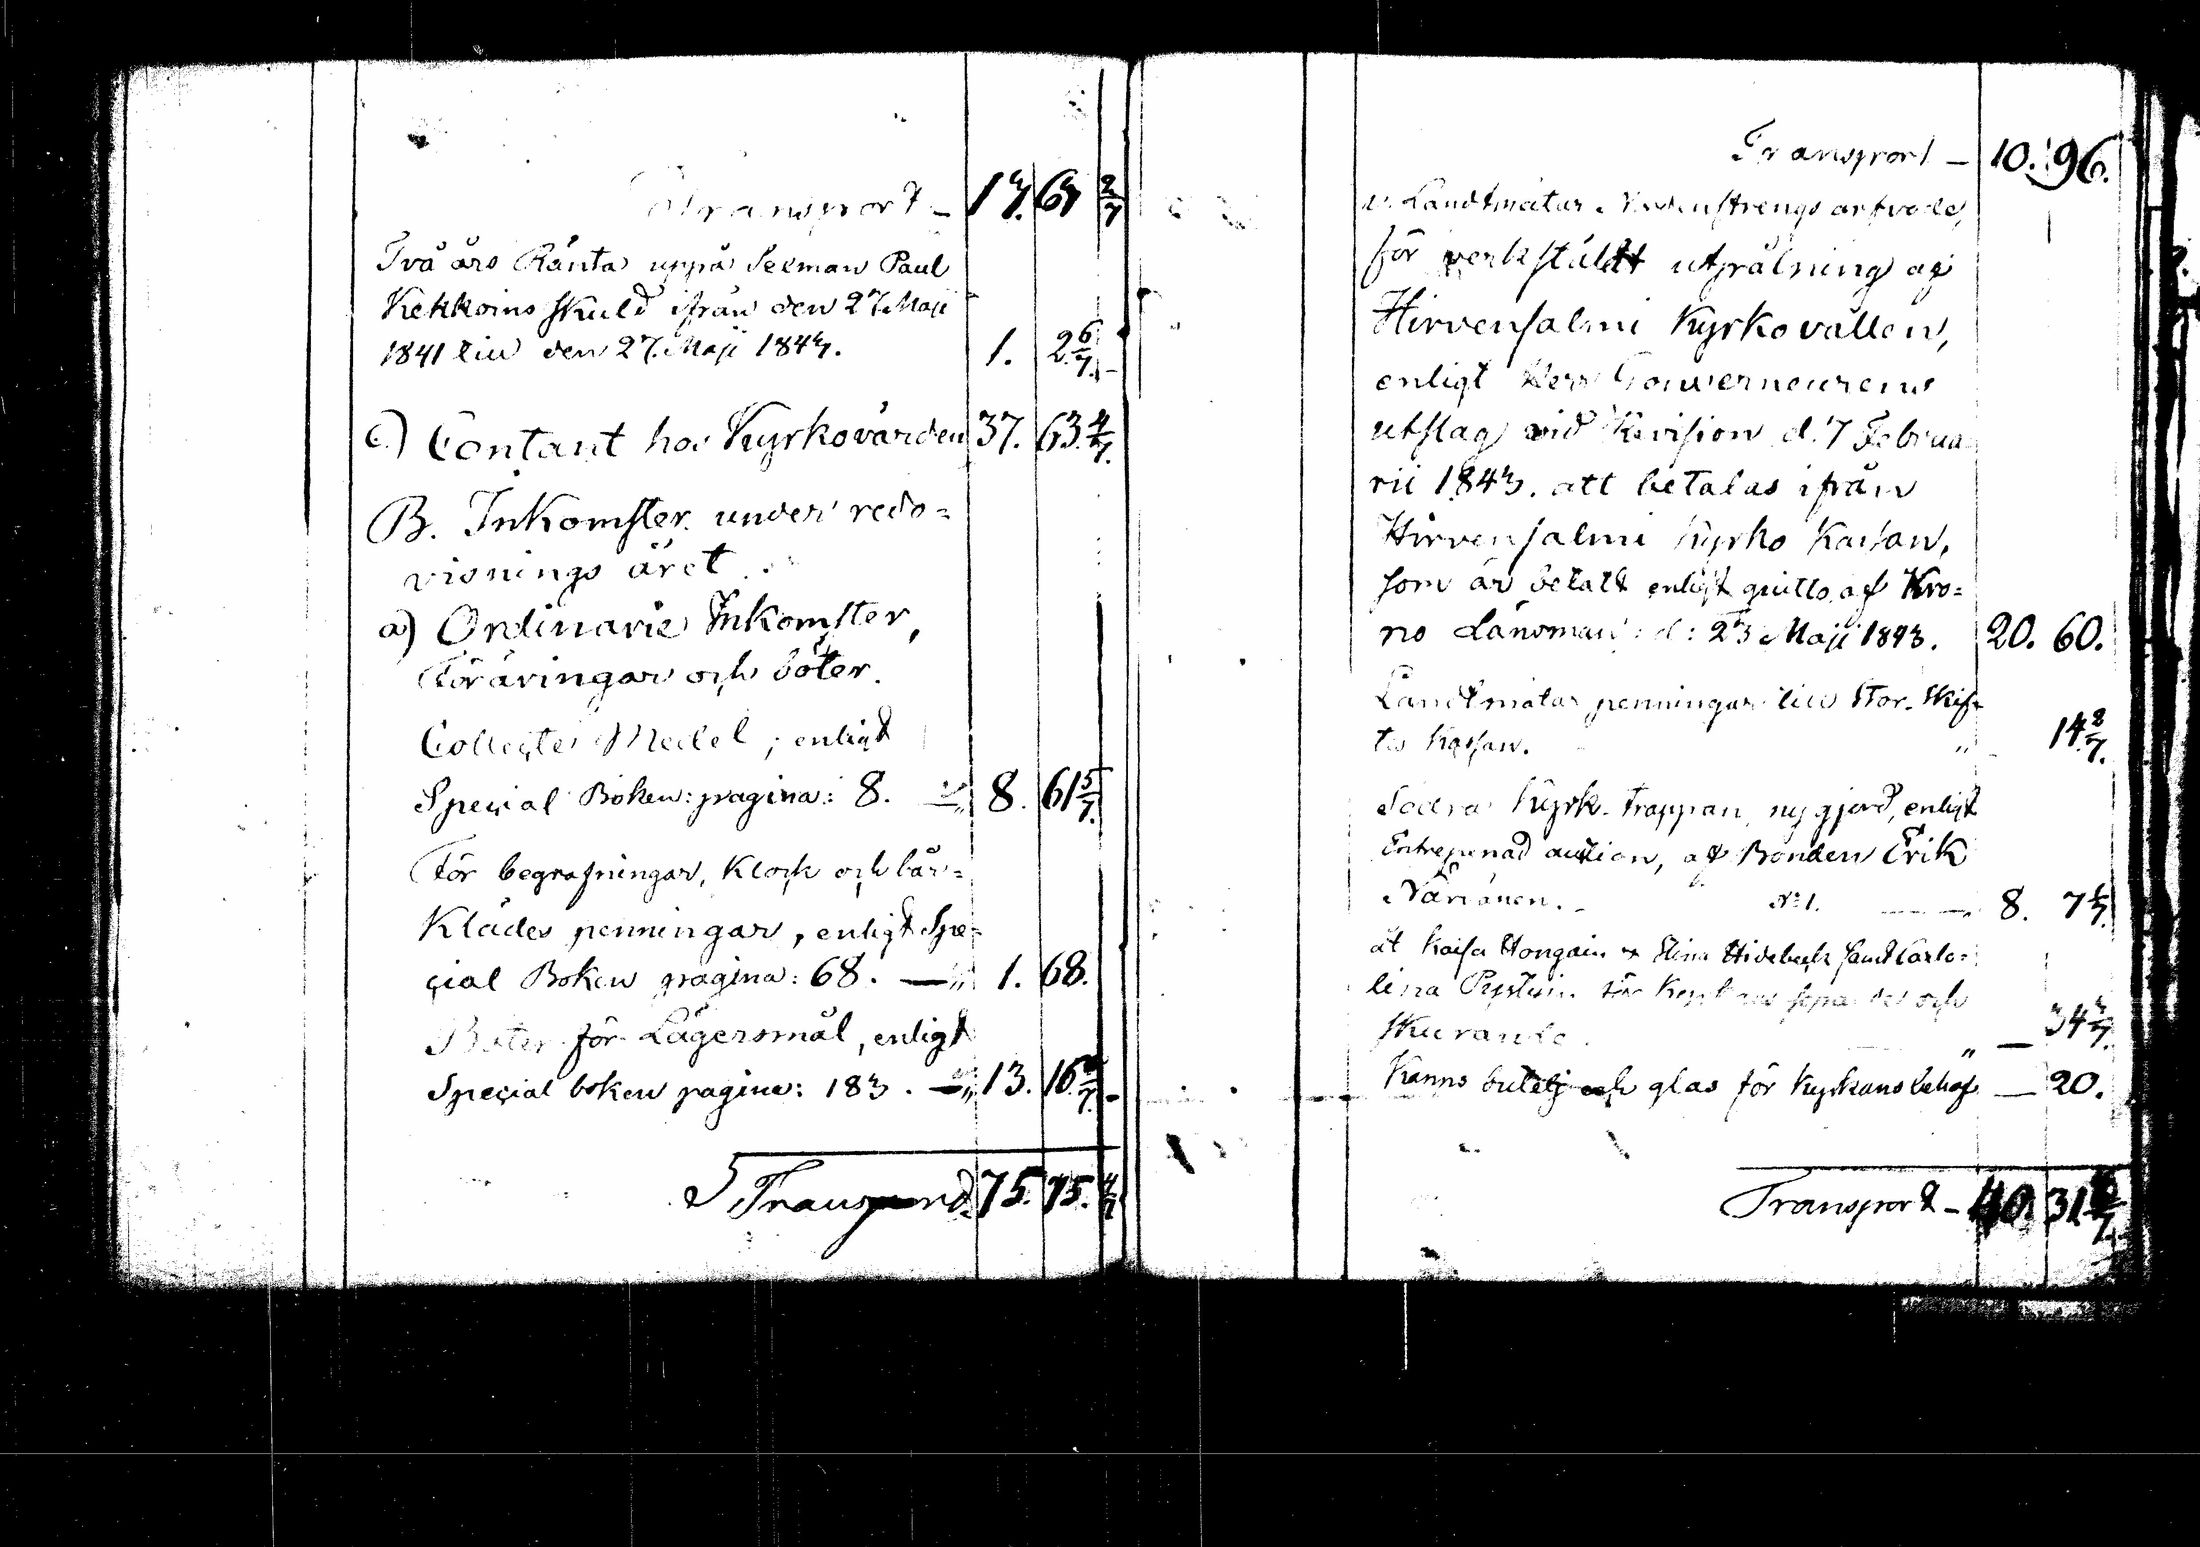 Transport - 13. 61 2/7
Två års Ränta uppå Seeman Paul
Kekkoins skuld ifrån den 27 Maji
1841 till den 27. Maji 1843. 1. 2 6/7 -
c) Contant hos Kyrkovärden 37. 63. 4/7.
B. Inkomster under redo=
visnings året.
a) Ordinarie Inkomster,
Föräringar och böter.
Collecter Medel, enligt
Special Boken: pagina: 8. 8. 61 5/7.
För begrafningar, Klock och bår=
Klädes penningar, enligt Spe=
cial Boken pagina: 68. — 1. 68.
Böter för Lägersmål, enligt
Special boken pagina: 183. — 13. 16
Transport 75. 75. 4/7
Transport - 10. 96.
Landtmätar arfvode,
för verkstäldt utpålning af
Hirvensalmi Kyrkovallen,
enligt Herr Gouverneurens
utslag vid Revision d. 7 Februa
rii 1843. att betalas ifrån
Hirvensalmi Kyrko Kassan,
som är betalt enligt quitto af Kro=
no Länsman d: 23 Maji 1843. 20. 60.
Landtmätar penningar till Stor-Skif=
tes Kassan. " 14 2/7.
Södra Kyrk-trappan, ny gjord, enligt
Entreprenad auction, af Bonden Erik
Närvänen. No 1. — 8. 7
åt Kaisa Hongain samt Caro=
lina för och
skurande. " — 34
Kanns butelj och glas för Kyrkans behof — 20.
Transport - 40. 31